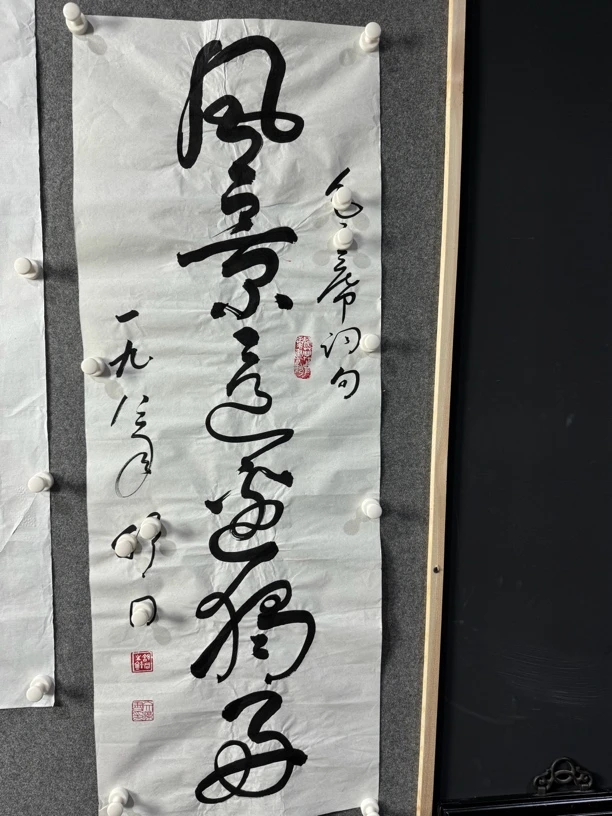 毛主席詞句
風景這邊獨好
一九八三年
舒同